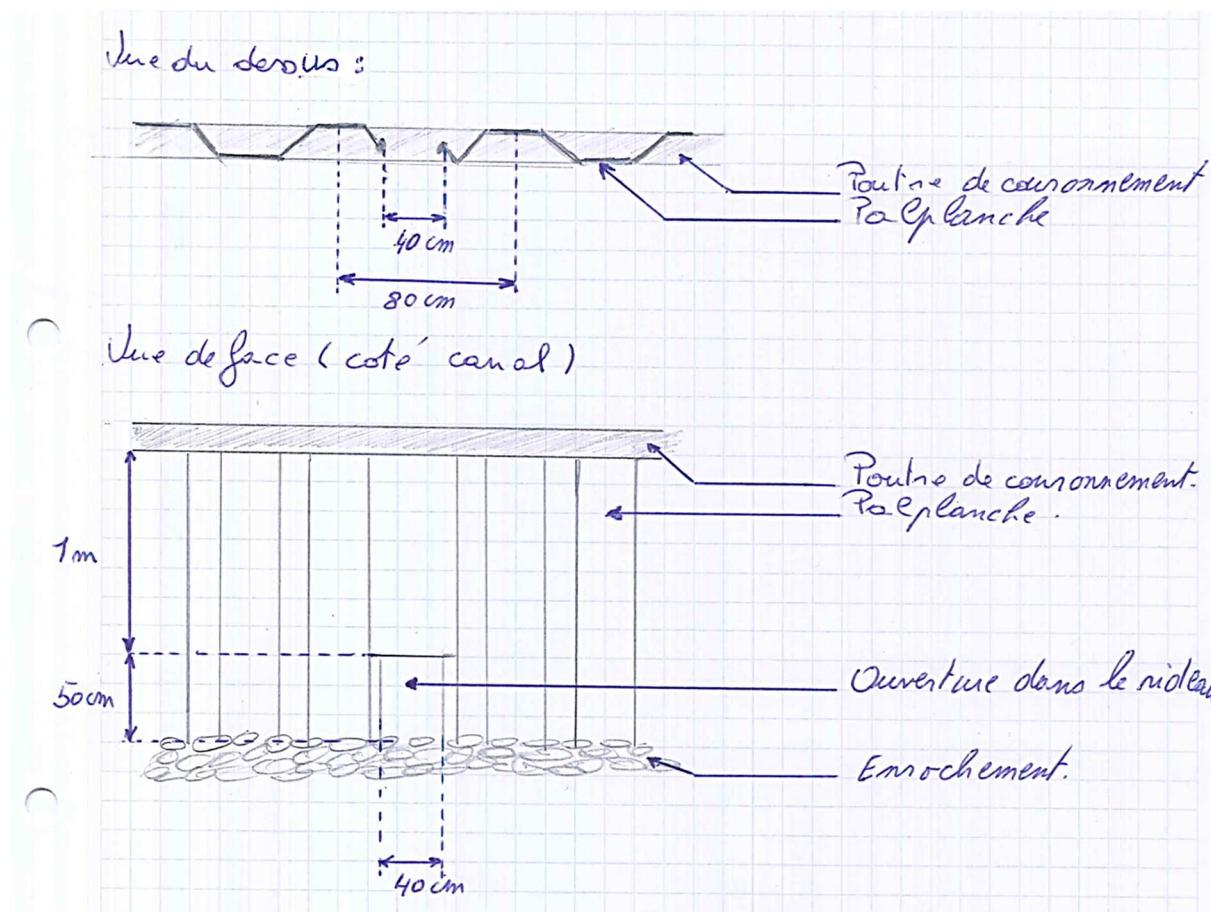 Vue du dessus :
Poutre de couronnement
Palplanche
40 cm
80 cm
Vue de face ( coté canal )
Poutre de couronnement.
Palplanche.
1 m
50 cm
Ouverture dans le rideau
Enrochement.
40 cm